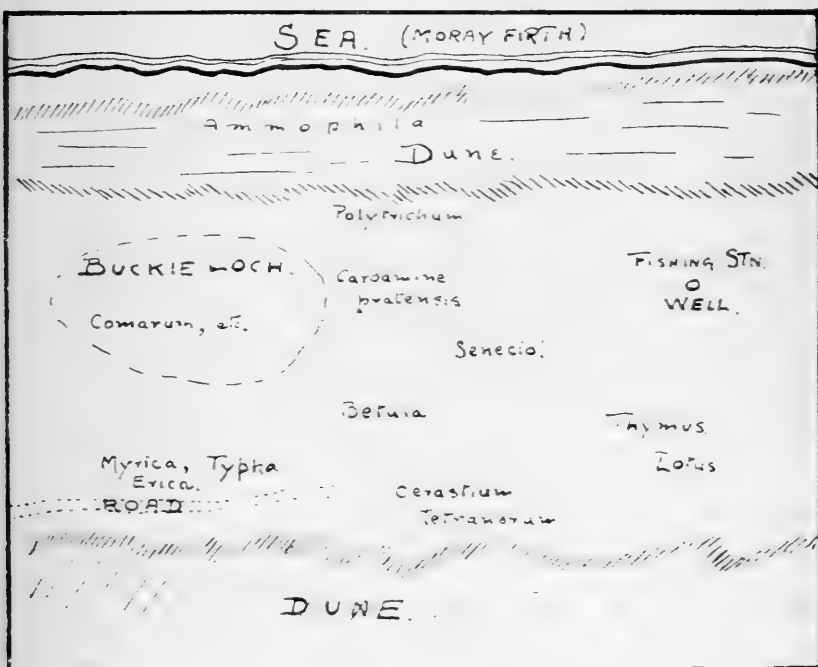 SEA. (MORAY FIRTH)
Ammophila
DUNE.
Polytrichum
BUCKIE LOCH.
Cardamine
pratensis
FISHING STN.
WELL.
Comarum, etc.
Senecio.
Betula
Thymus
Lotus
Myrica, Typha
Erica.
ROAD
Cerastium
Tetranorum
DUNE.